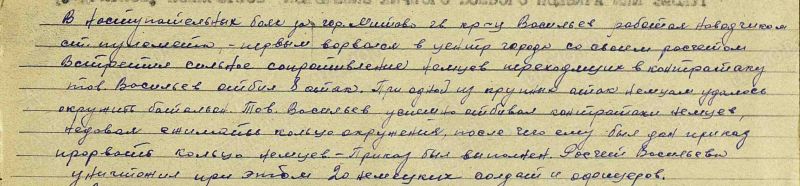 В наступательных боях за гор. Митово гв кр-ц Васильев работая наводчиком
ст. пулемета, - первым ворвался в центр города со своим расчетом
Встретив сильное сопротивление немцев переходящих в контратаку
тов. Васильев отбил 8 атак. При одной из крупных атак немцам удалось
окружить батальон. Тов. Васильев успешно отбивал контратаки немцев,
не давая сжимать кольцо окружения, после чего ему был дан приказ
прорвать кольцо немцев - Приказ был выполнен. Расчет Васильева
уничтожил при этом 20 немецких солдат и офицеров.